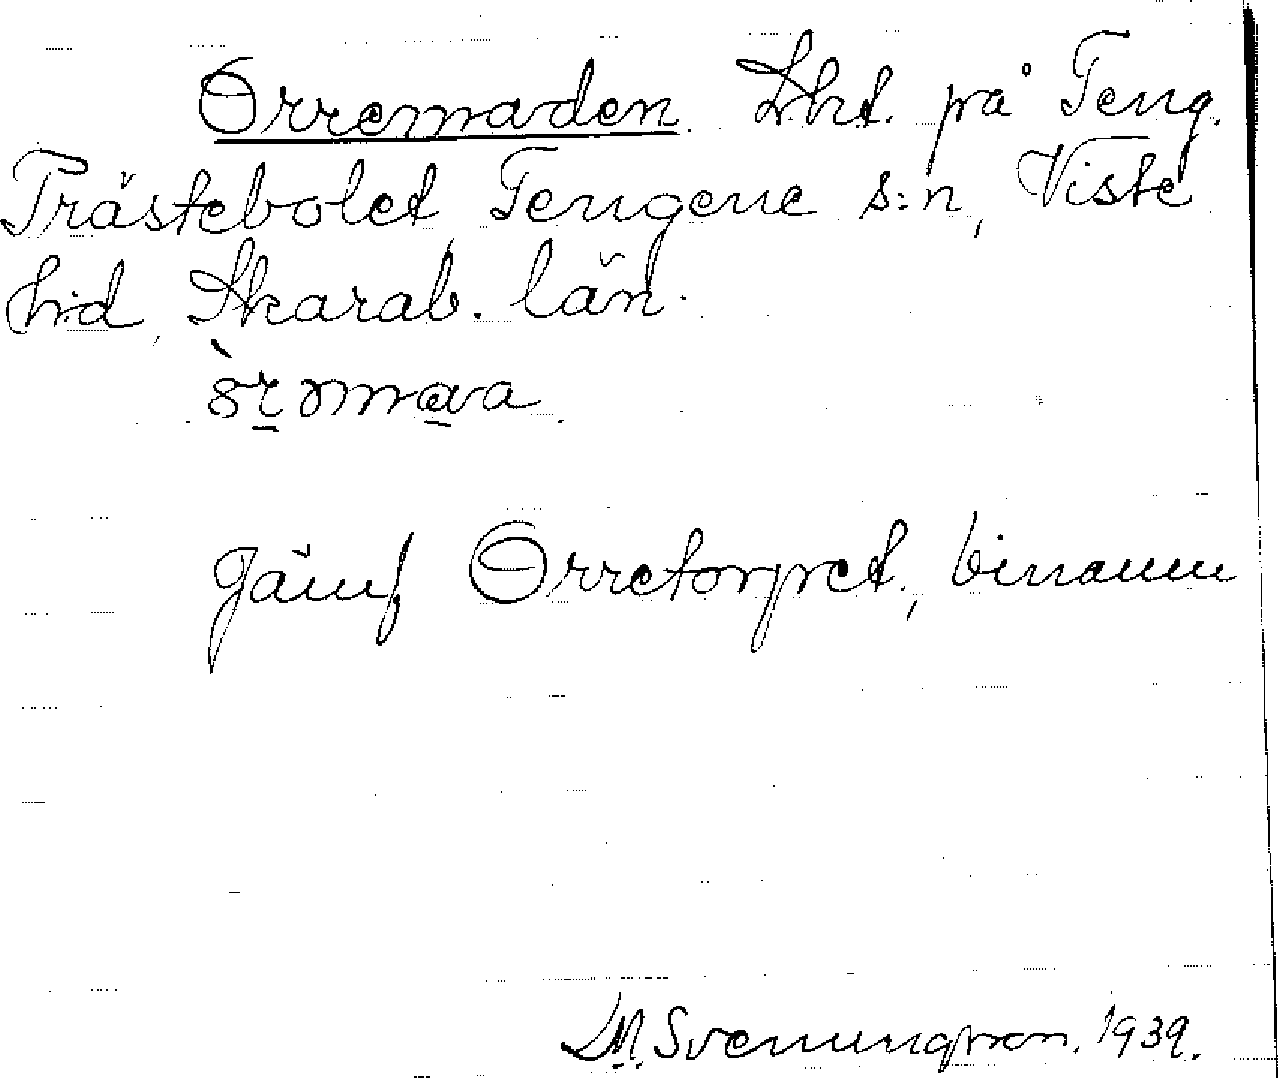 Orremaden. Lht. på Teng.
Trästebolet, Tengene s:n, Viste
hd, Skarab. län.
Jämf Orretorpet, binamn
Svenungsson. 1939.